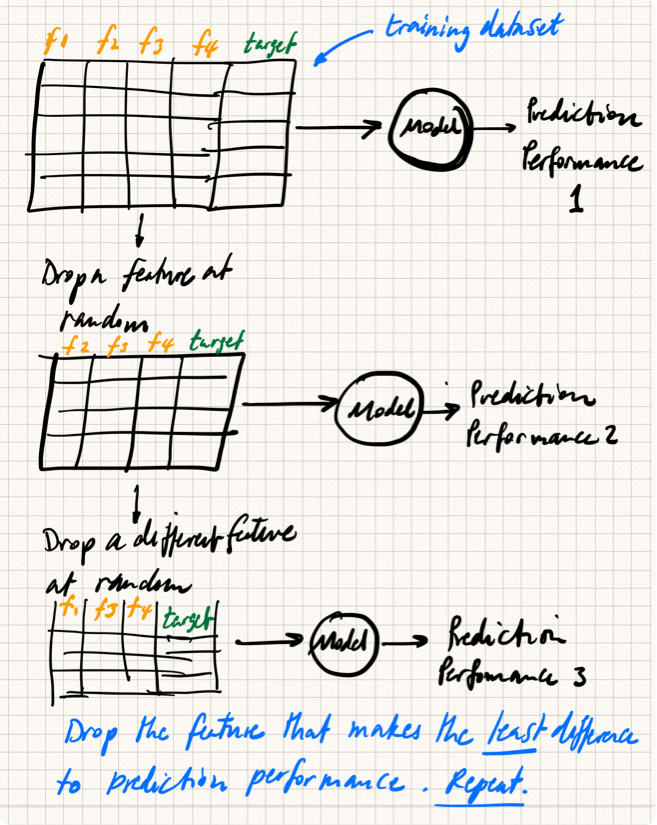 f1 f2 f3 f4 target
training dataset
Model
Prediction
Performance
1
Drop a feature at
random
f2 f3 f4 target
Model
Prediction
Performance 2
Drop a different feature
at random
f1 f3 f4 target
Model
Prediction
Performance 3
Drop the feature that makes the least difference
to prediction performance. Repeat.